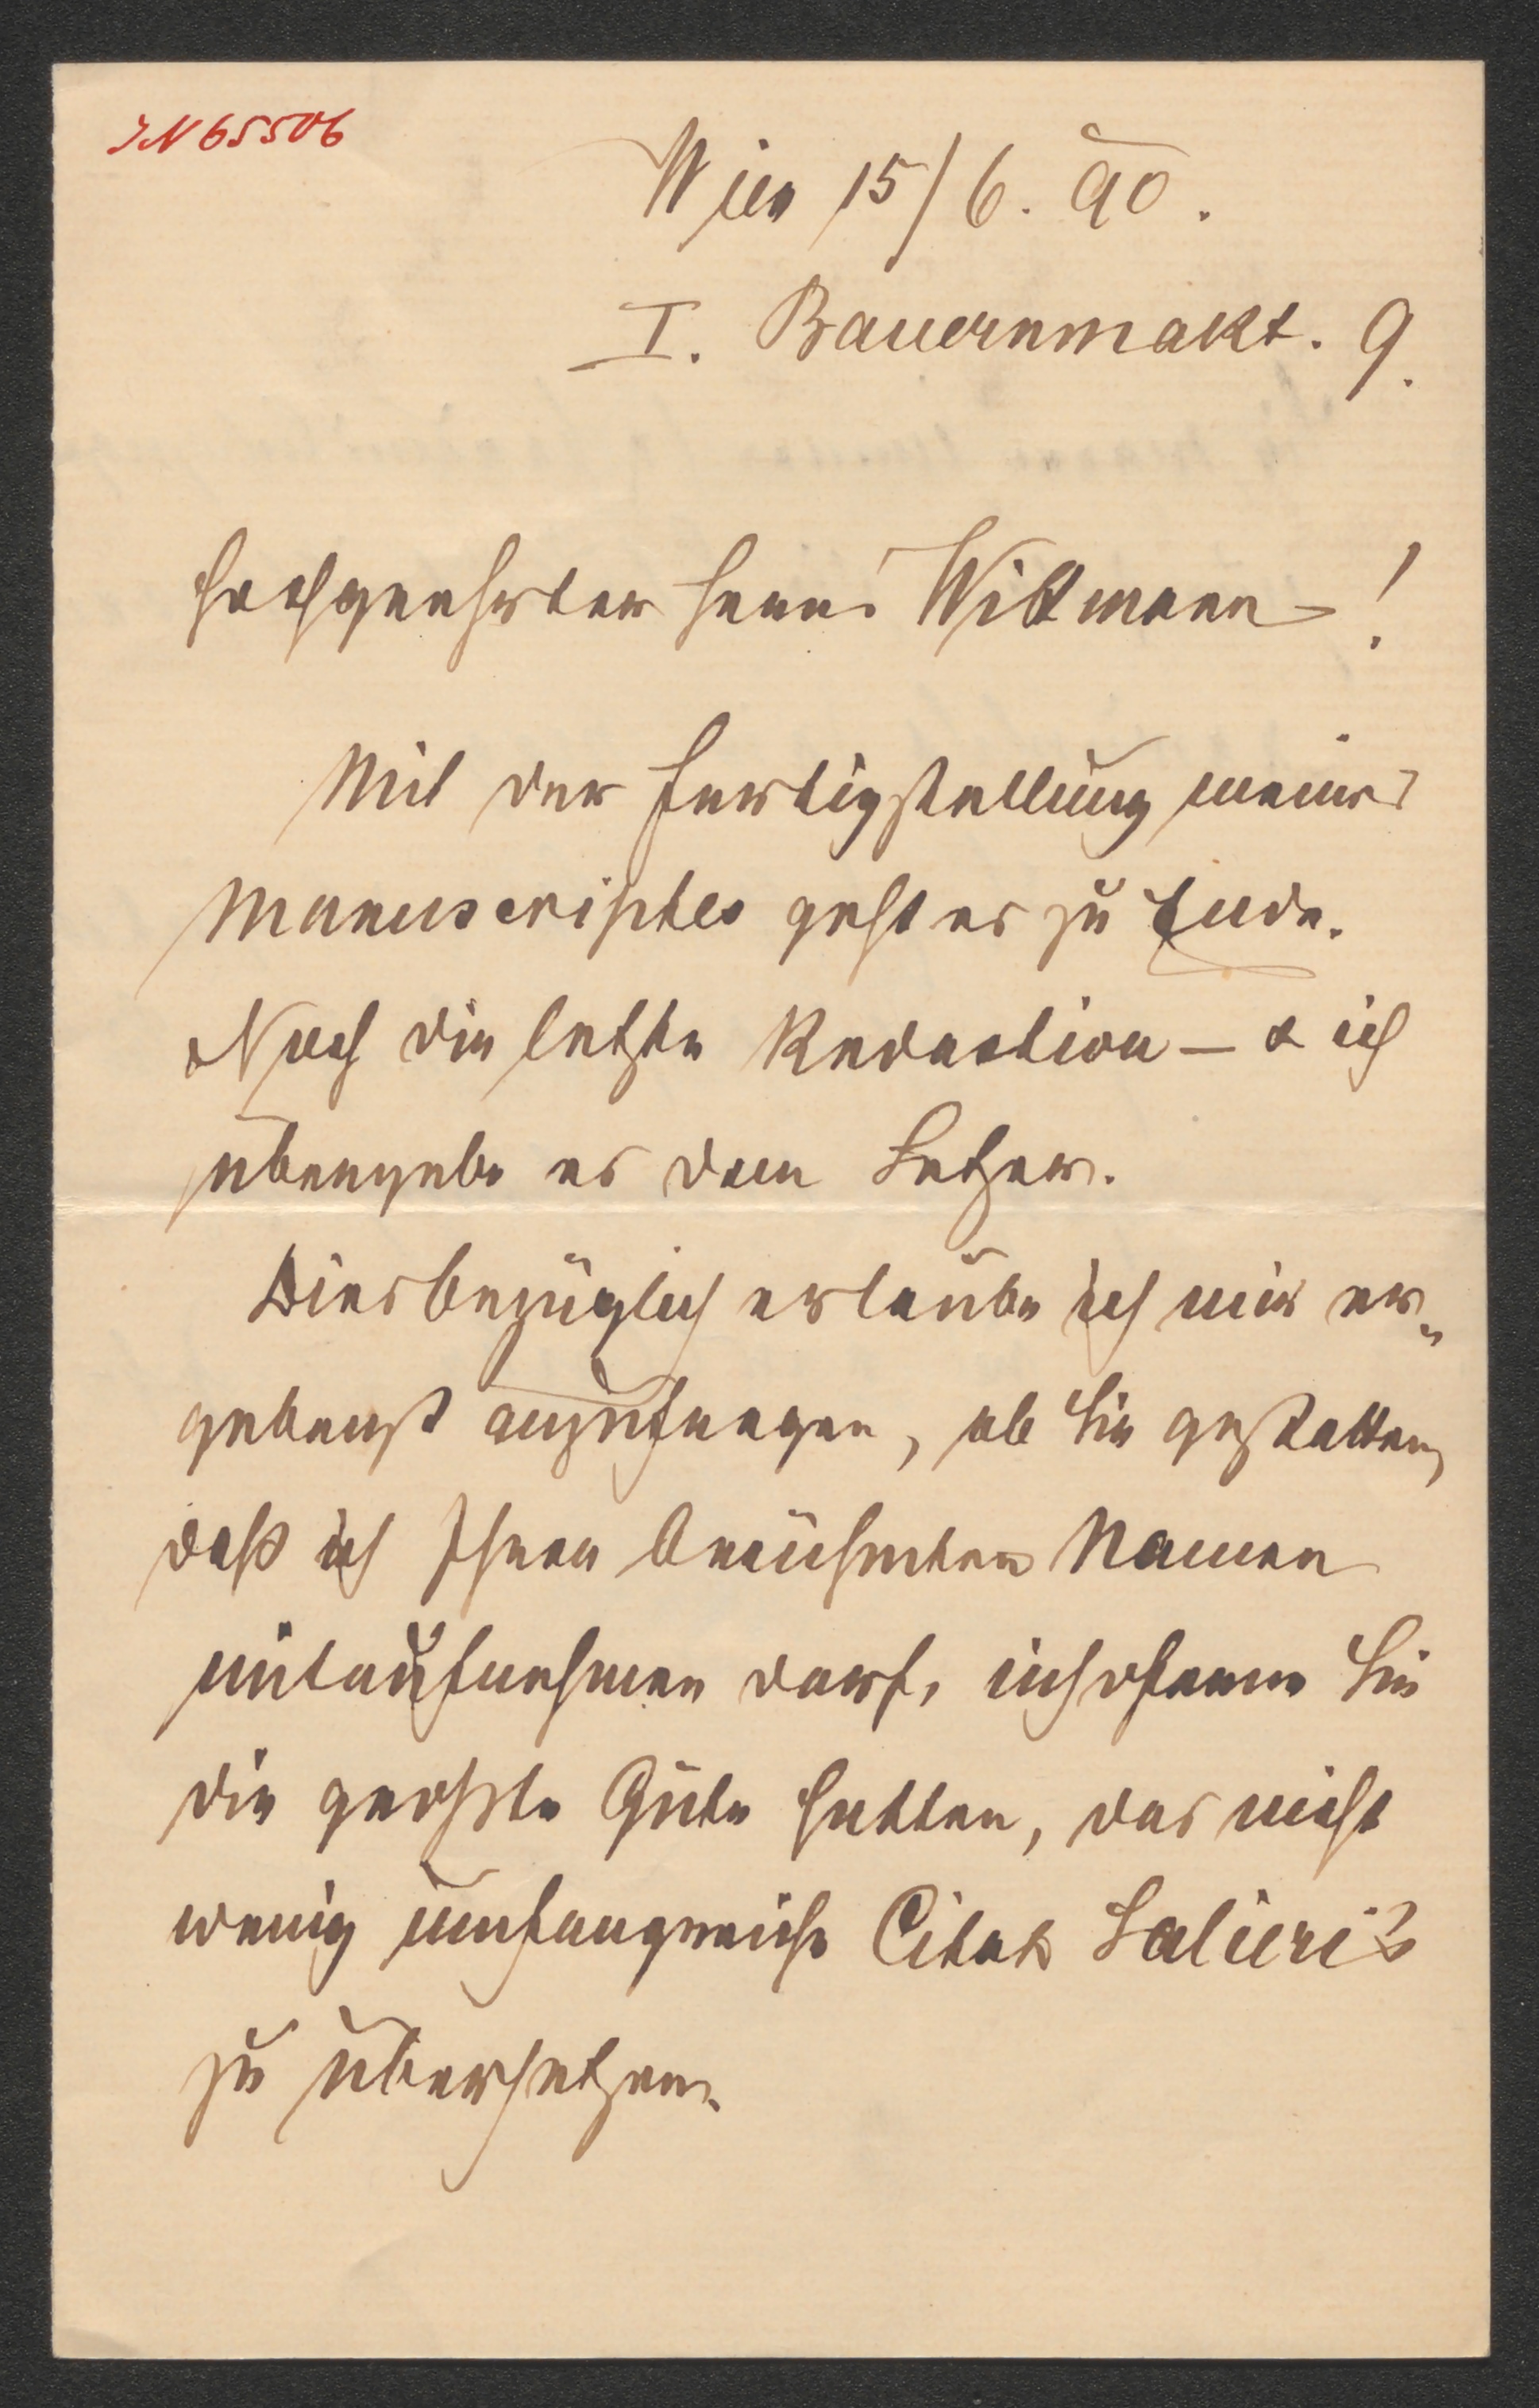 IN 65506
Wien 15/6. 90.
I. Bauernmakt. 9.
Hochgeehrter Herr Wittmann!
Mit der Fertigstellung meines
Manuscriptes geht es zu Ende.
Noch die letzte Redaction – & ich
übergebe es dem Setzer.
Diesbezüglich erlaube ich mir er-
gebenst anzufragen, ob Sie gestatten,
daß ich Ihren berühmten Namen
mitaufnehmen darf, insoferne Sie
die große Güte hatten, das nicht
wenig umfangreiche Citat Salieri's
zu übersetzen.